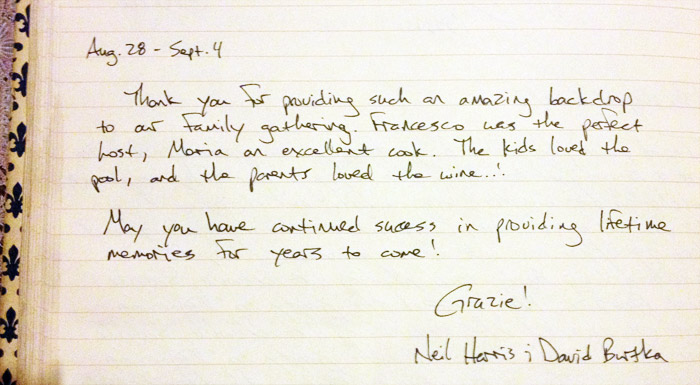 Aug. 28 - Sept. 4
Thank you for providing such an amazing backdrop
to our family gathering. Francesco was the perfect
host, Maria an excellent cook. The kids loved the
pool, and the parents loved the wine...!
May you have continued sucess in providing lifetime
memories for years to come!
Grazie!
Neil Harris & David Burtka